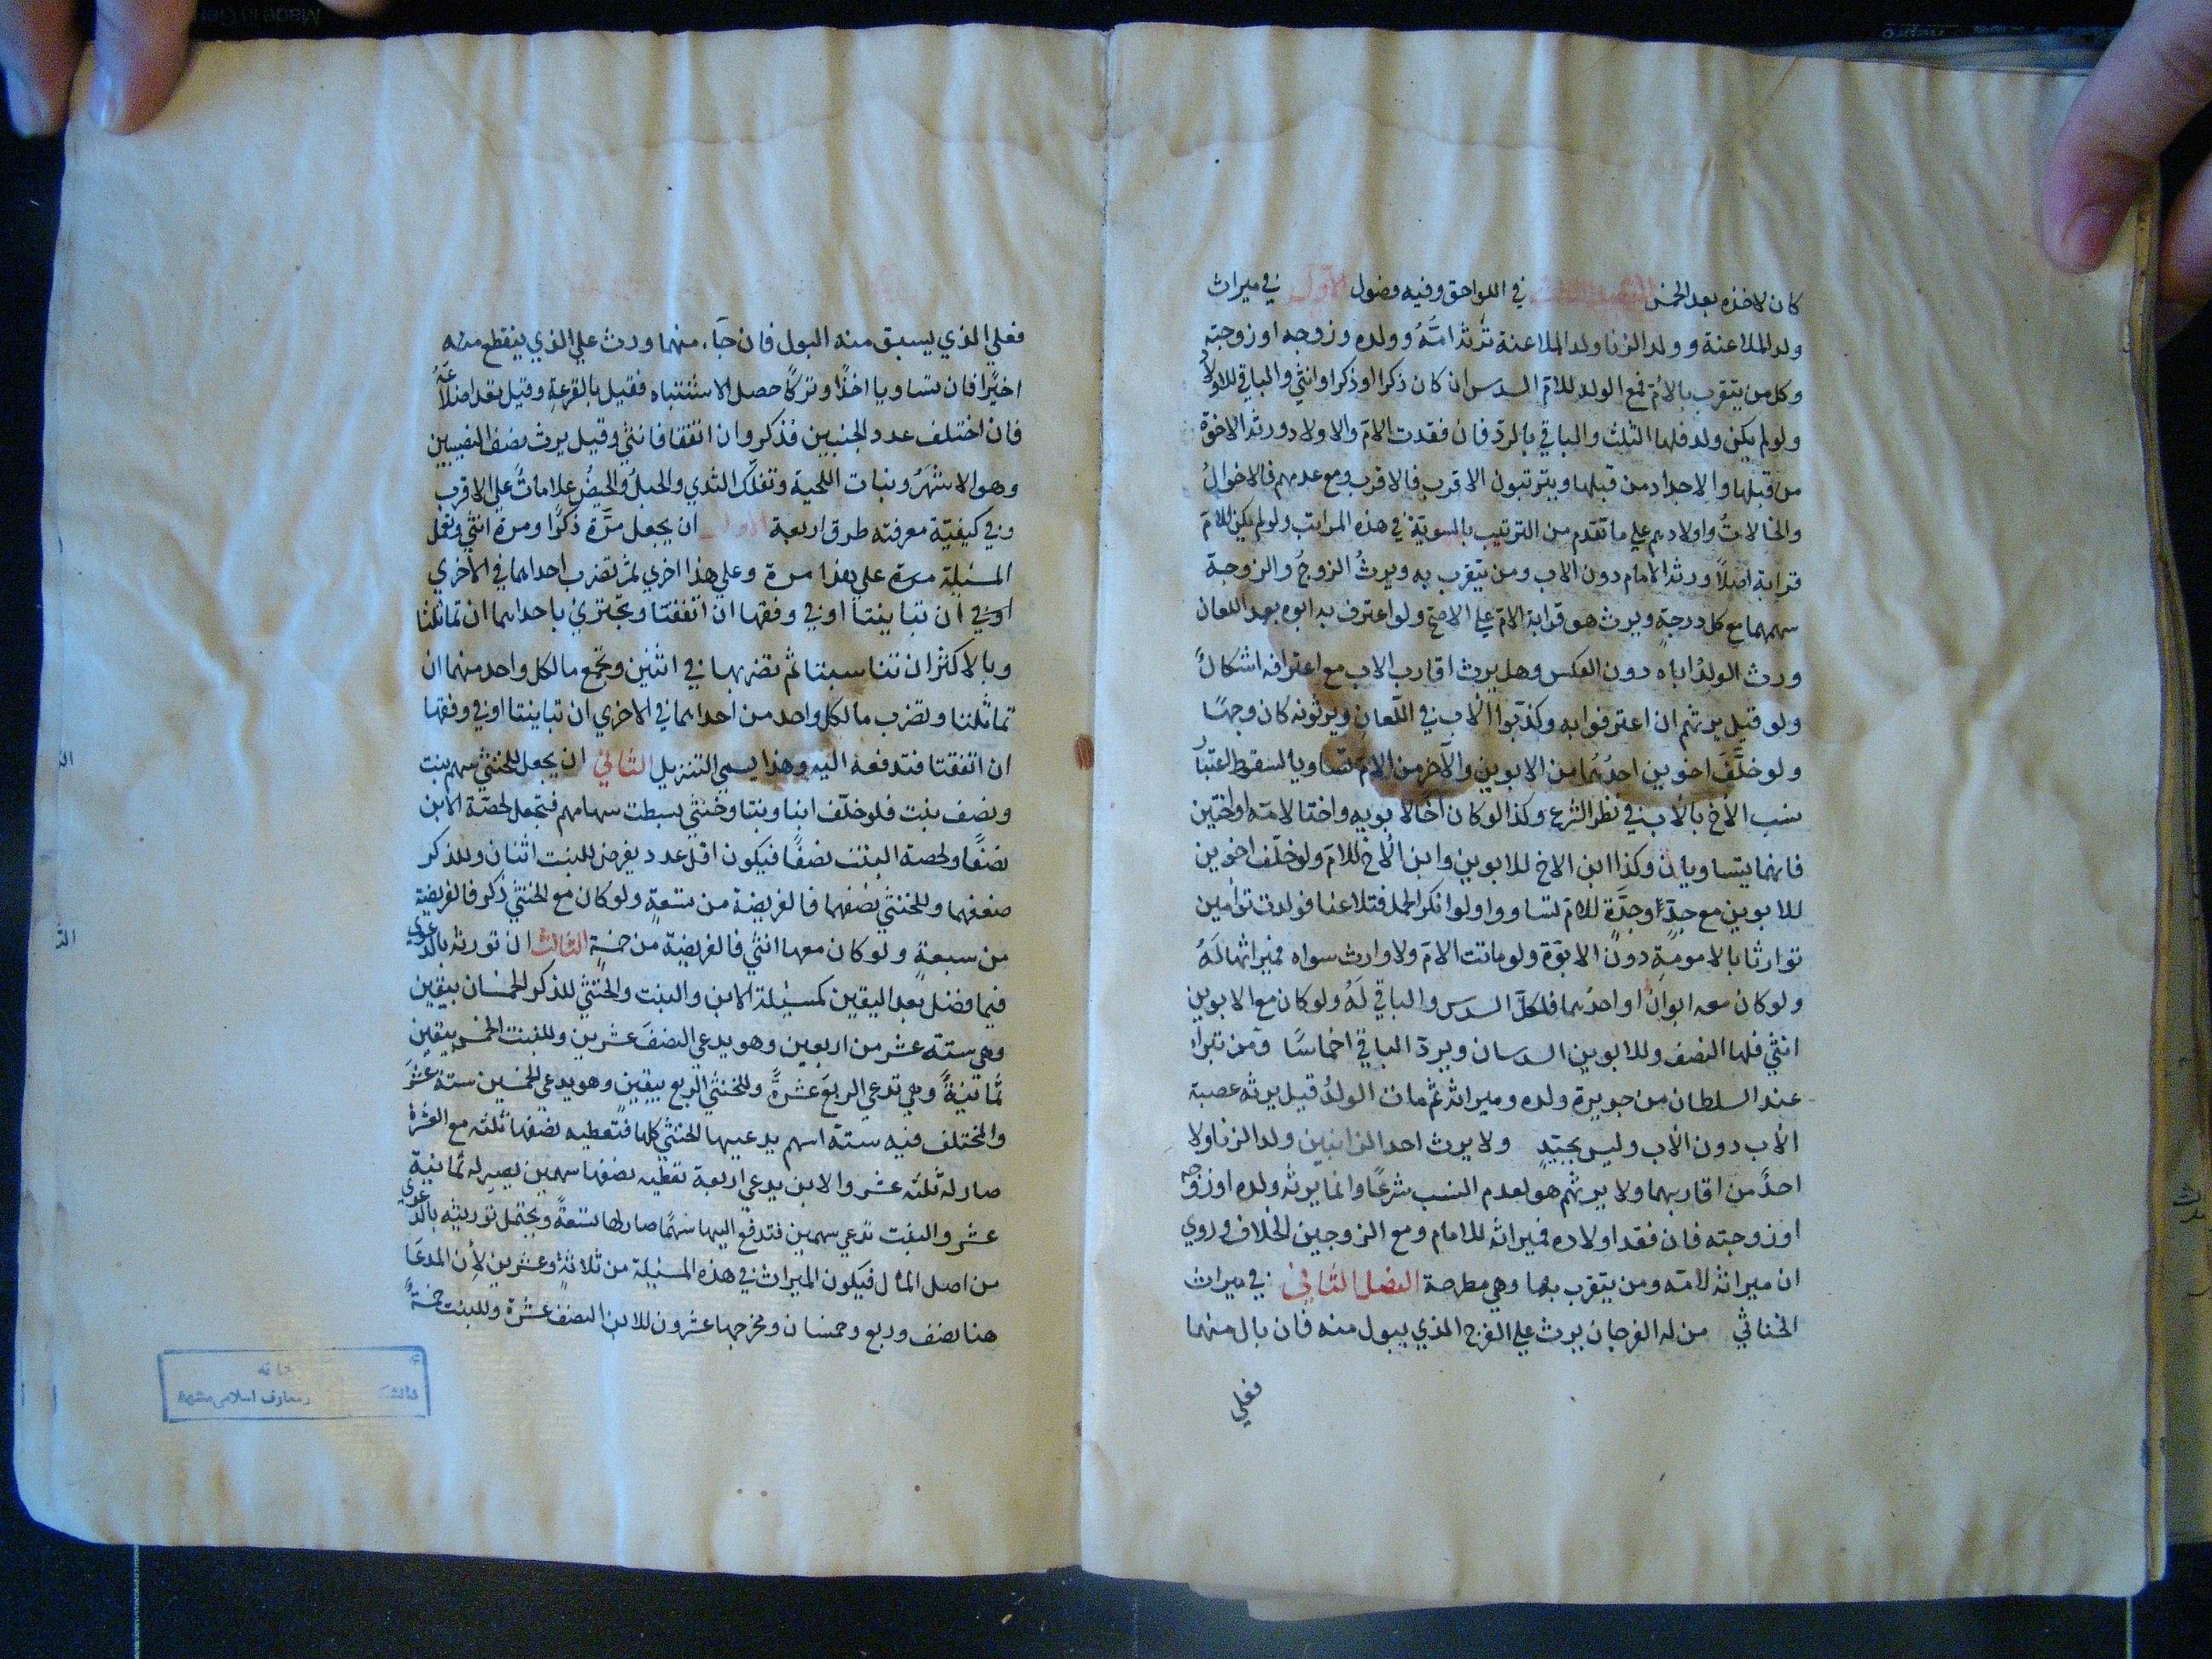 كان لاخذه بعد الخمس المقصد الثالث في اللواحق وفيه فصول الأول في ميراث
ولد الملاعنة وولد الزنا ولد الملاعنة ترثه امّهُ وولده وزوجه او زوجته
وكل من يتقرب بالأم فمع الولد للام السدس ان كان ذكرا او ذكرا وانثي والباقي للاولاد
ولو لم يكن ولد فلها الثلث والباقي بالرد فان فقدت الام والاولاد ورثه الاخوة
من قبلها والاجداد من قبلها ويترتبون الاقرب فالاقرب ومع عدمهم فالاخوالُ
والخالاتُ واولادهم علي ما تقدم من الترتيب بالسويّة في هذه المراتب ولو لم يكن للام
قرابة اصلاً ورثه الامام دون الاب ومن يتقرب به ويرثُ الزوجُ والزوجة
سهمهما مع كل درجةٍ ويرث هو قرابة الام علي الاصح ولو اعترف به ابوه بعد اللعان
ورث الولدُ اباه دون العكس وهل يرث اقارب الاب مع اعترافه اشكالٌ
ولو قيل يرثهم ان اعترفوا به وكذبوا الأب في اللّعان ويرثونه كان وجهًا
ولو خلَّف اخوين احدُهُما من الابوين والآخر من الام تساويا لسقوط اعتبار
نسب الأخ بالأب في نظر الشرع وكذا لو كان اخًا لأبويه واختا لامه او اختين
فانهما يتساويان وكذا ابن الاخ للابوين وابن الأخ للام ولو خلّف اخوين
للابوين مع جدٍّ او جدَّةٍ للام تساووا ولو انكر الحمل فتلاعنا فولدت توأمين
توارثا بالامومةِ دون الابوّة ولو ماتت الامّ ولا وارث سواه فميراثها لَهُ
ولو كان معه ابوان او احدُهما فلكلٍ السدس والباقي لَهُ ولو كان مع الابوين
انثي فلها النصف وللابوين السدسان ويردّ الباقي اخماسًا ومن تبرأ
عند السلطان من جريرة ولده وميراثه ثم مات الولدُ قيل يرثه عصبة
الأب دون الأب وليس بجيّدٍ ولا يرث احد الزانيين ولد الزنا ولا
احدٌ من اقاربهما ولا يرثهم هو لعدم النسب شرعًا وانما يرثه ولده او زوجه
او زوجته فان فقد اولاده فميراثه للامام ومع الزوجين الخلاف وروي
ان ميراثه لامّه ومن يتقرب بها وهي مطرحة الفصل الثاني في ميراث
الخناثي من له الفرجان يرث علي الفرج الذي يبول منه فان بال منهما
فعلي
فعلي الذي يسبق منه البول فان جآء منهما ورث علي الذي ينقطع منه
اخيرًا فان تساويا اخذًا وتركًا حصل الاشتباه فقيل بالقرعةِ وقيل بعدّ اضلاعه
فان اختلف عدد الجنبين فذكر وان اتفقا فانثي وقيل يرث نصف النصيبين
وهو الاشهَرُ ونبات اللحية وتفلّك الثدي والحبلُ والحيضُ علاماتٌ علي الاقرب
وفي كيفيّة معرفته طرق اربعة الأول ان يجعل مرَّة ذكرًا ومرة انثي وتعمل
المسئلة مرة علي هذا مرة وعلي هذا اخري ثم تضرب احداهما في الأخري
او في ان تباينتا او في وفقها ان اتفقتا وتجتزئ باحداهما ان تماثلتا
وبالاكثر ان تناسبتا ثم تضربها في اثنين وتجمع ما لكل واحد منهما ان
تماثلتا وتضرب ما لكل واحد من احداهما في الاخري ان تباينتا او في وفقها
ان اتفقتا فتدفعه اليه وهذا يسمي التنزيل الثاني ان يجعل للخنثي سهم بنت
ونصف بنت فلو خلّف ابنا وبنتا وخنثي بسطت سهامهم فتجعل لحصّة الابن
نصفًا ولحصة البنت نصفًا فيكون اقل عدد يفرض للبنت اثنان وللذكر
ضعفهما وللخنثي نصفهما فالفريضة من تسعةٍ ولو كان مع الخنثي ذكر فالفريضة
من سبعةٍ ولو كان معها انثي فالفريضة من خمسةٍ الثالث ان تورثه بالدعوي
فيما فضل بعد اليقين كمسئلة الابن والبنت والخنثي للذكر الخمسان بيقين
وهي ستة عشر من اربعين وهو يدعي النصفَ عشرين وللبنت الخمس بيقين
ثمانيةٌ وهي تدعي الربعَ عشرةً وللخنثي الربع بيقين وهو يدعي الخمسين ستة عشرَ
والمختلف فيه ستة اسهم يدعيها الخنثي كلها فتعطيه نصفها ثلثه مع العشرة
صار له ثلثه عشر والابن يدعي اربعة تعطيه نصفها سهمين يصير له ثمانية
عشر والبنت تدعي سهمين فتدفع اليها سهمًا صار لها تسعةٌ ويحتمل توريثه بالدعوي
من اصل المال فيكون الميراث في هذه المسئلة من ثلاثةٍ وعشرين لأن المدعَا
هنا نصف وربع وخمسان ومخرجها عشرون للابن النصف عشرة وللبنت خمسةٌ
خانه
معارف اسلامی مشهد